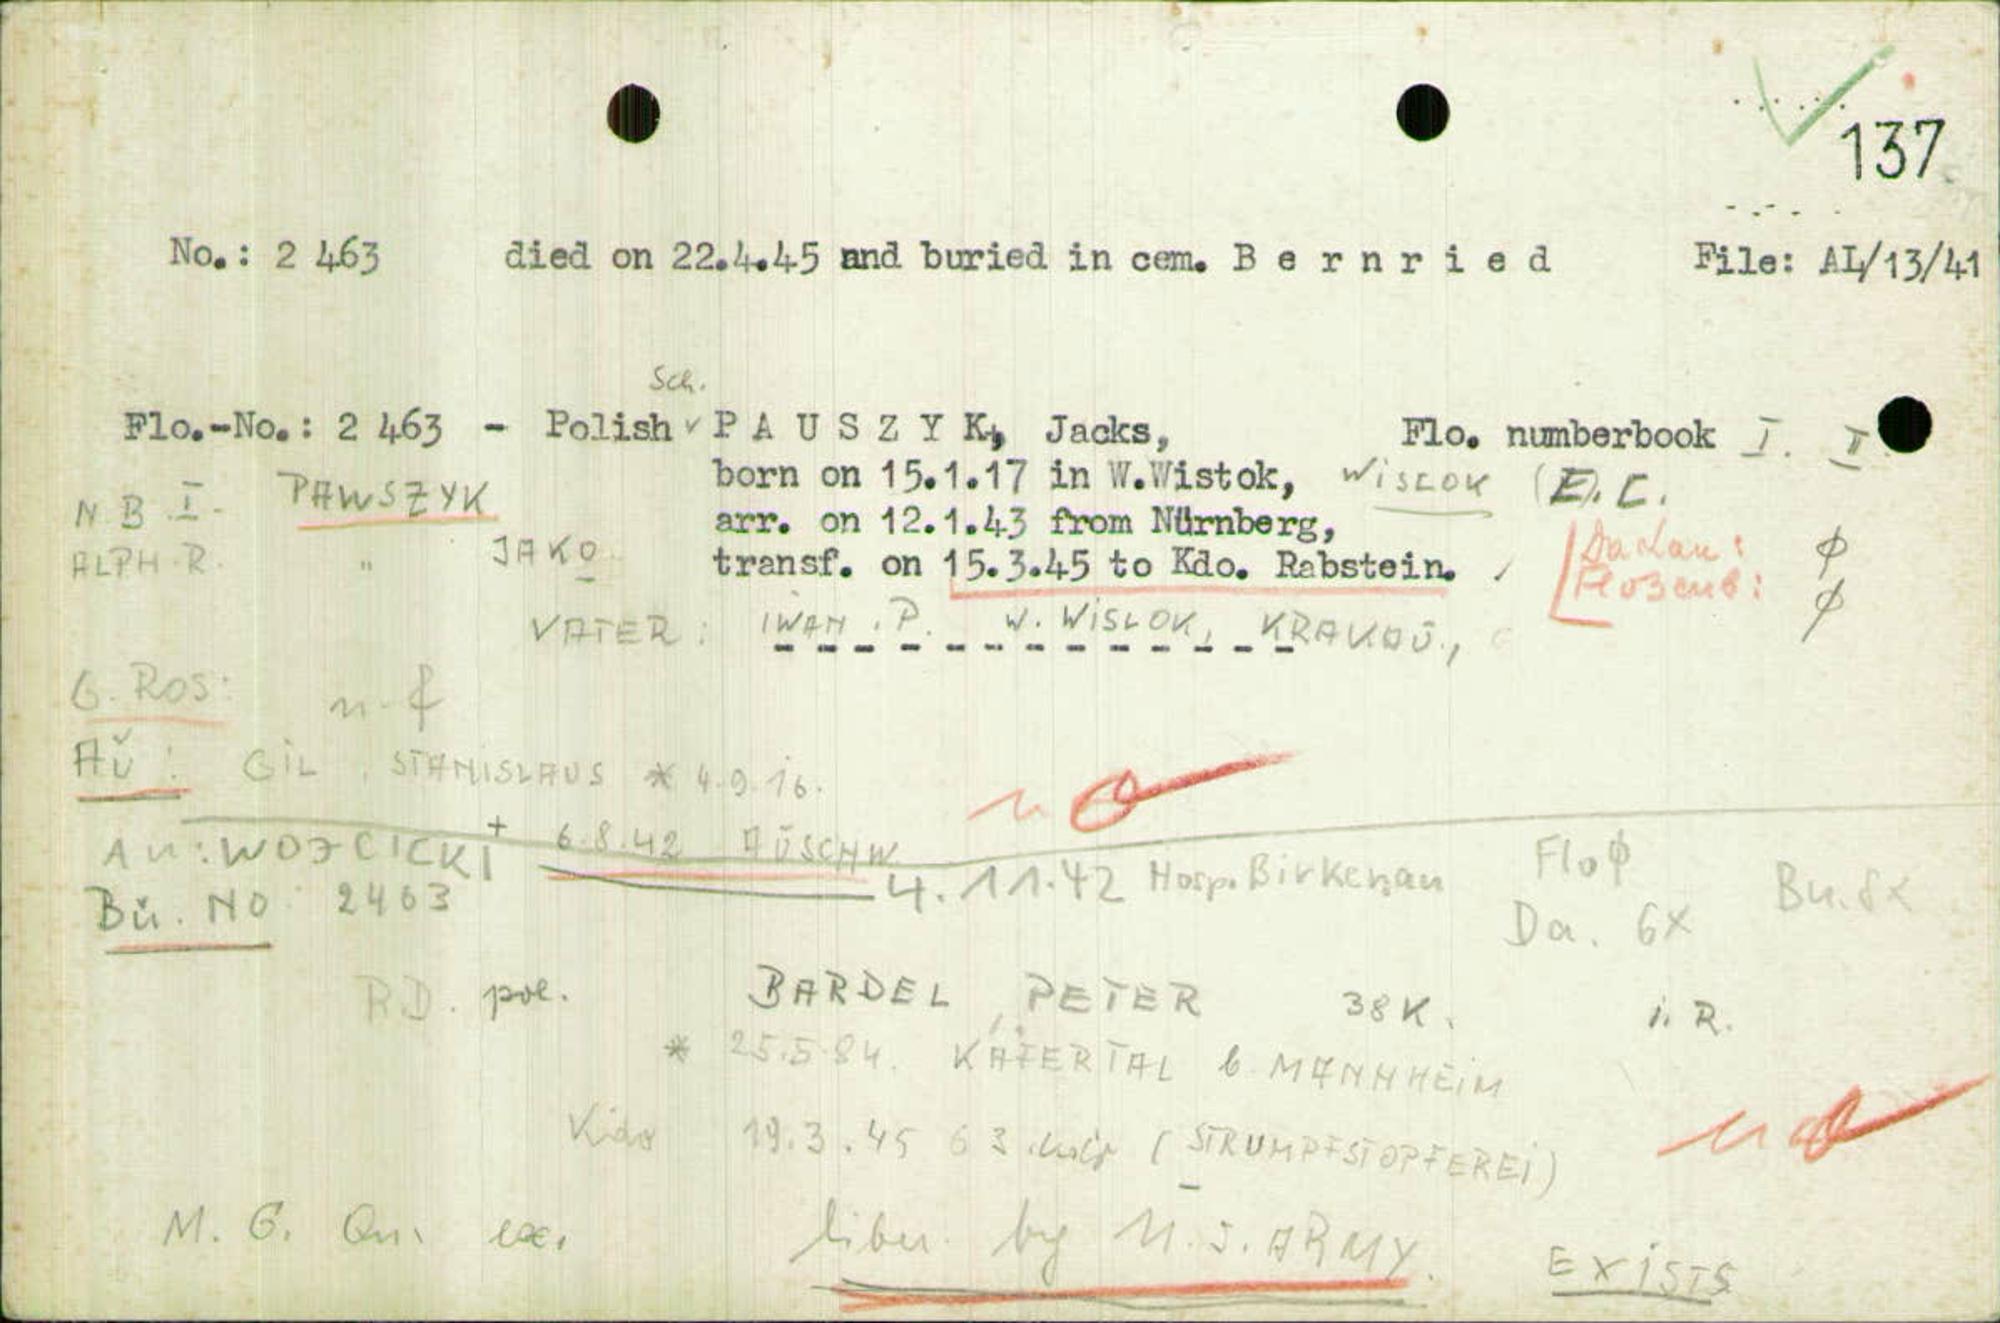 137
No.: 2 463 died on 22.4.45 and buried in cem. B e r n r i e d File: AL/13/41
Sch.
Flo.-No.: 2 463 - Polish P A U S Z Y K, Jacks, Flo. numberbook I. II
born on 15.1.17 in W.Wistok, WISLOK (E). C.
N B I. PAWSZYK
arr. on 12.1.43 from Nürnberg,
ALPH. R. " JAKO
transf. on 15.3.45 to Kdo. Rabstein.
Dachau: ϕ
Flossenb: ϕ
VATER: IWAN . P. W. WISLOK, KRAKAU.,
G. ROS: n. f
AU: GIL, STANISLAUS * 4.9.16.
+ 6.8.42 AUSCHW.
Au: WOJCICKI 4.11.42 Hosp. Birkenau Flo ϕ
Bu. NO: 2463 Da. 6X Bu. 8X
R.D. pol. BARDEL, PETER 38 K. i. R.
* 25.5.84. KÄFERTAL b. MANNHEIM
Kdo 19.3.45 63 (STRUMPFSTOPFEREI)
no
no
M. G. Qu. ex. liber. by U.S. ARMY. EXISTS